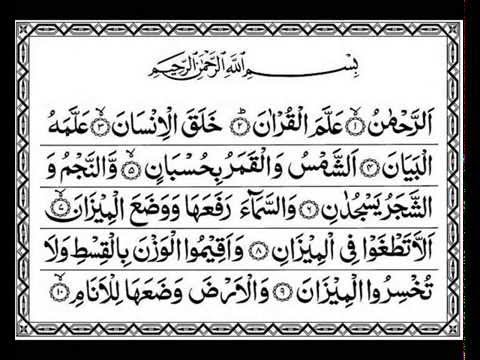 بِسْمِ اللّٰهِ الرَّحْمٰنِ الرَّحِيْمِ
اَلرَّحْمٰنُ ۙ﴿۱﴾ عَلَّمَ الْقُرْاٰنَ ؕ﴿۲﴾ خَلَقَ الْاِنْسَانَ ۙ﴿۳﴾ عَلَّمَهُ
الْبَيَانَ ﴿۴﴾ اَلشَّمْسُ وَالْقَمَرُ بِحُسْبَانٍ ۙ﴿۵﴾ وَّالنَّجْمُ وَ
الشَّجَرُ يَسْجُدٰنِ ﴿۶﴾ وَالسَّمَآءَ رَفَعَهَا وَوَضَعَ الْمِيْزَانَ ۙ﴿۷﴾
اَلَّا تَطْغَوْا فِى الْمِيْزَانِ ﴿۸﴾ وَاَقِيْمُوا الْوَزْنَ بِالْقِسْطِ وَلَا
تُخْسِرُوا الْمِيْزَانَ ﴿۹﴾ وَالْاَرْضَ وَضَعَهَا لِلْاَنَامِ ۙ﴿۱۰﴾